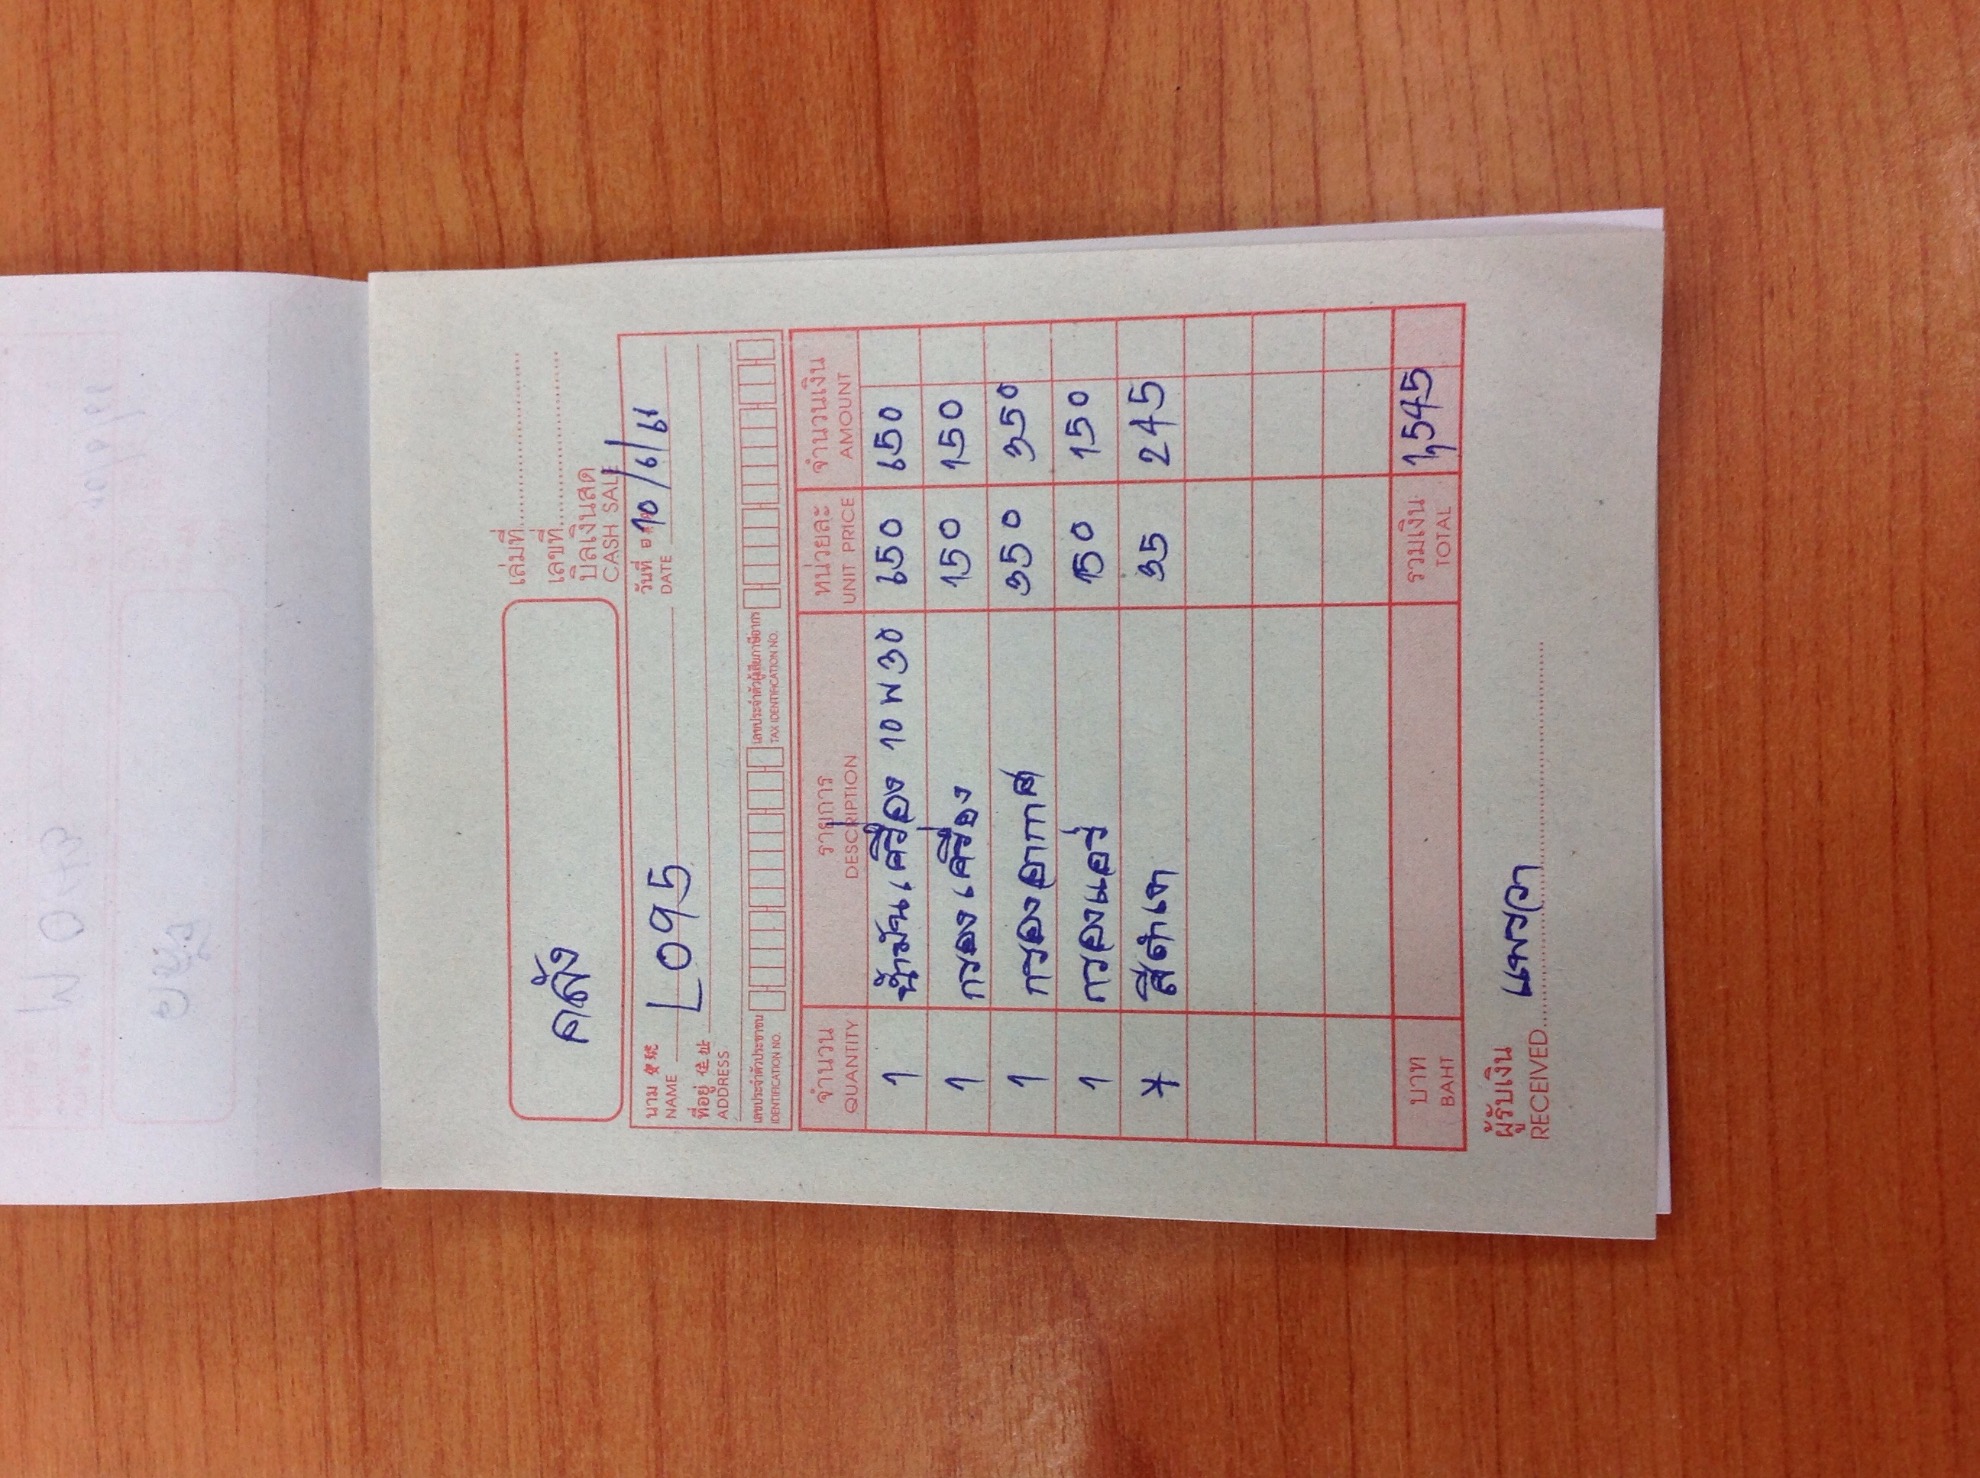 คลัง
เล่มที่
เลขที่
บิลเงินสด
CASH SALE
นาม 寶號 L095 วันที่ 10/6/61
NAME DATE
ที่อยู่ 住址
ADDRESS
เลขประจำตัวประชาชน เลขประจำตัวผู้เสียภาษีอากร
IDENTIFICATION NO. TAX IDENTIFICATION NO.
จำนวน รายการ หน่วยละ จำนวนเงิน
QUANTITY DESCRIPTION UNIT PRICE AMOUNT
1 น้ำมันเครื่อง 10W30 650 650
1 กรองเครื่อง 150 150
1 กรองอากาศ 350 350
1 กรองแอร์ 150 150
7 สีดำเงา 35 245
บาท รวมเงิน 1,545
BAHT TOTAL
ผู้รับเงิน แพรวา
RECEIVED